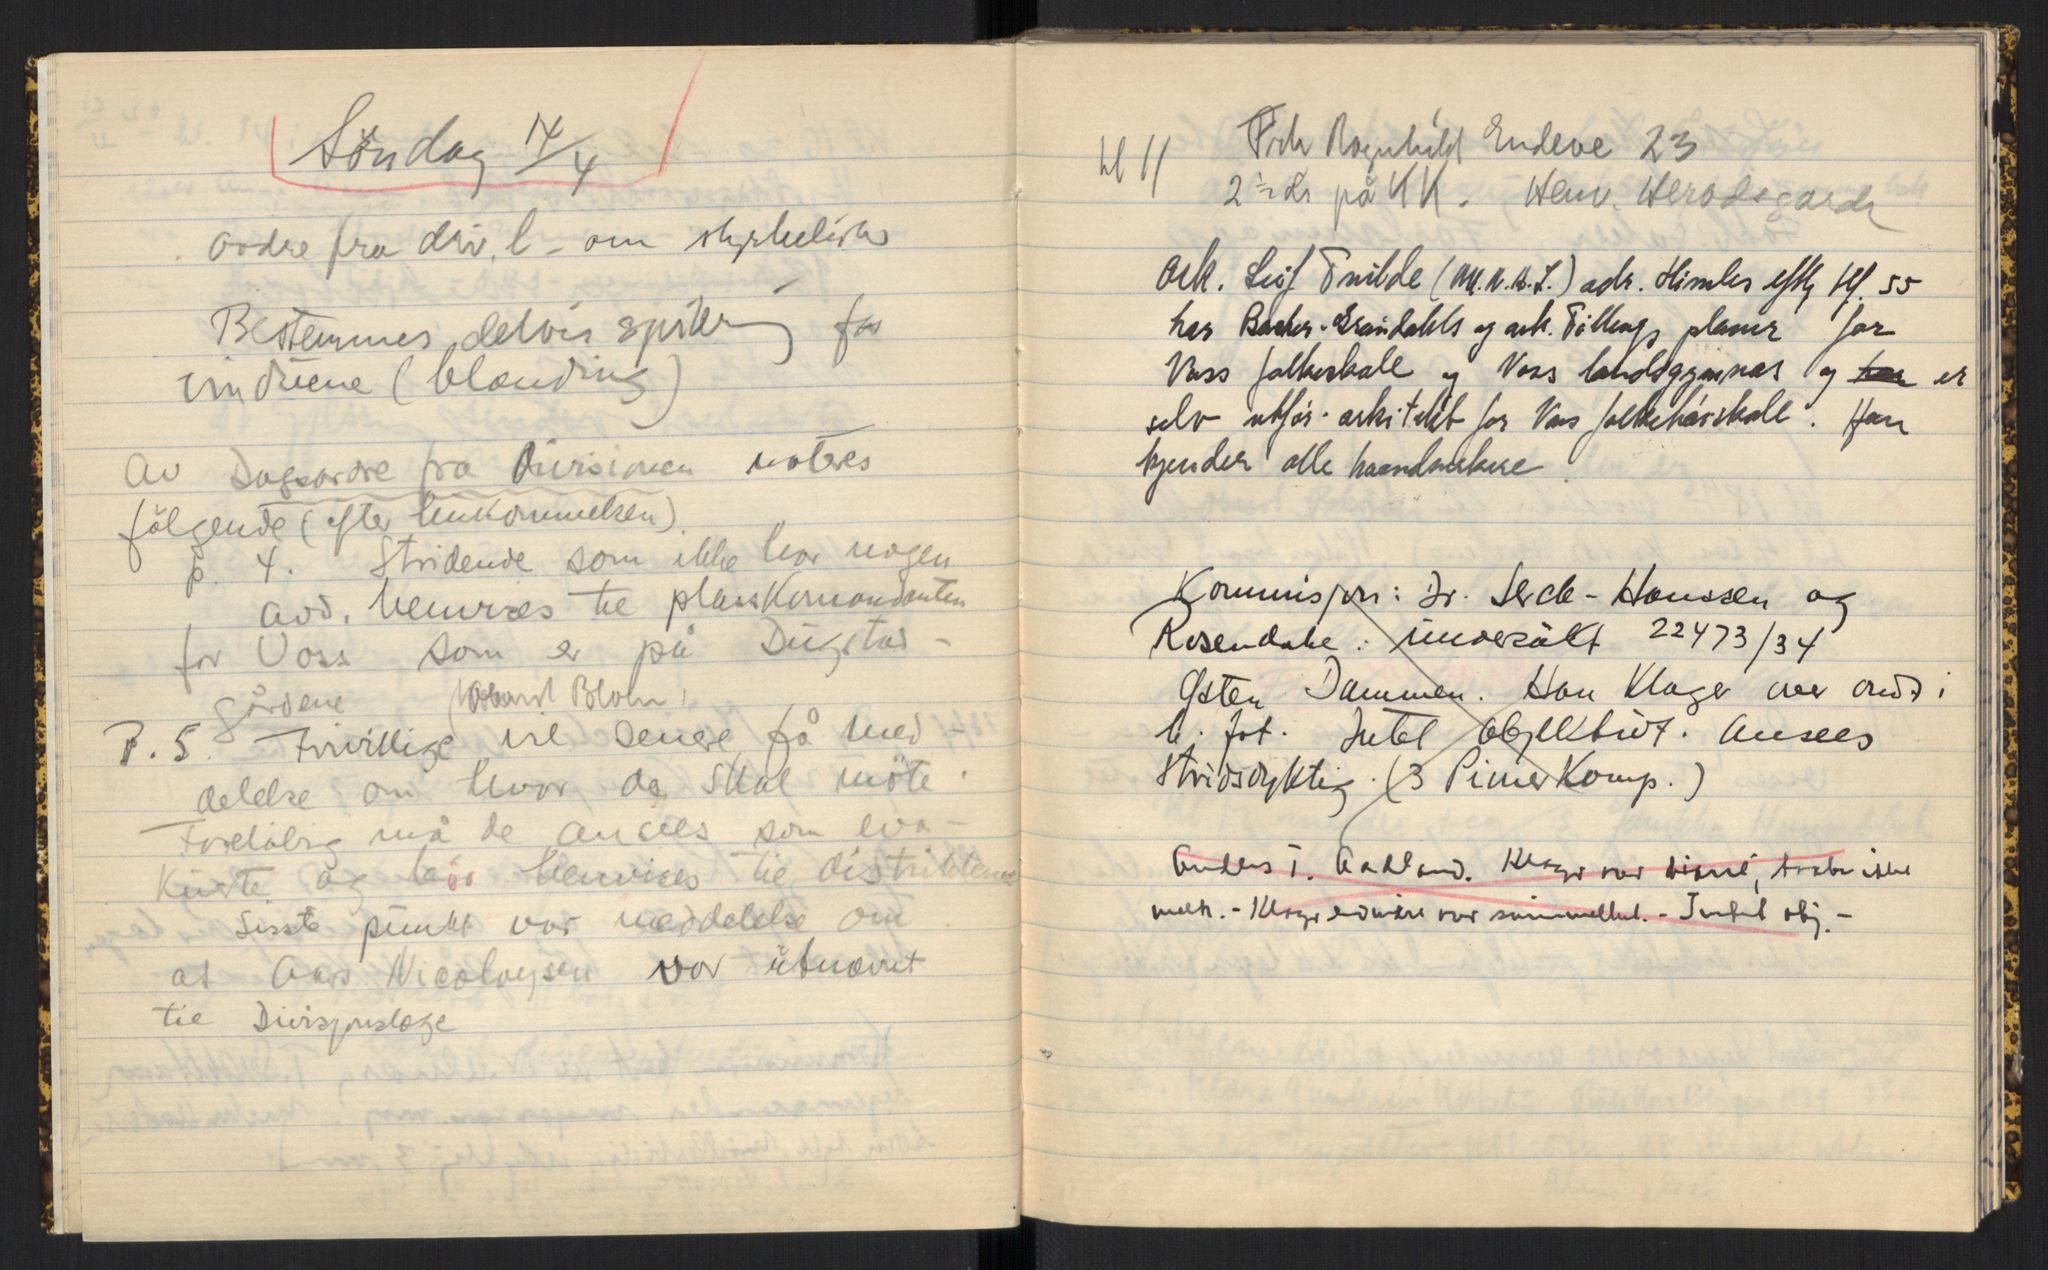 Søndag 14/4
Ordre fra div. l - om styrkeliste
Bestemmes delvis spikring for
vinduene (blænding)
Av Dagsordre fra Divisionen noteres
følgende (efter hukommelsen)
p. 4. Stridende som ikke har nogen
avd. henvises til plasskomandanten
for Voss som er på Dugstad-
gårdene (Oberst Blom)
P. 5. Frivillige vil senere få med-
delelse om hvor de skal møte.
Foreløbig må de ansees som eva-
kuerte og henvises til distriktene
Siste punkt var meddelelse om
at Aars Nicolaysen var utnævnt
til Divisjonslæge
kl 11
Frk Ragnhild Endeve 23
2 år på KK. Henv. Herodsgaard
Ark. Leif Tvilde (M.N.A.L.) adr. Himles eftf tlf. 55
har Backer-Grøndahls og ark. Tillungs planer for
Voss folkeskole og Voss landsgymnas og har er
selv utfør. arkitekt for Voss folkehøiskole. Han
kjender alle haandverkere
Kommisjon: Dr. Lerck-Hanssen og
Rosendahl: undersøkt 22473/34
Østen Dammen. Han klager over ondt i
h. fot. Intet objektivt. Ansees
Stridsdyktig. (3 Pionerkomp.)
Anders I. Aakland. Klager over
- Intet obj. -